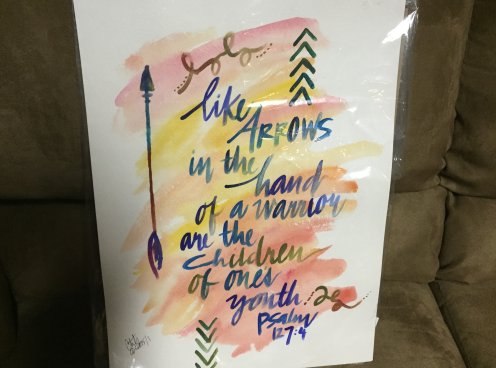 like
ARROWS
in the
hand
of a warrior
are the
children
of ones
youth.
Psalm
127:4